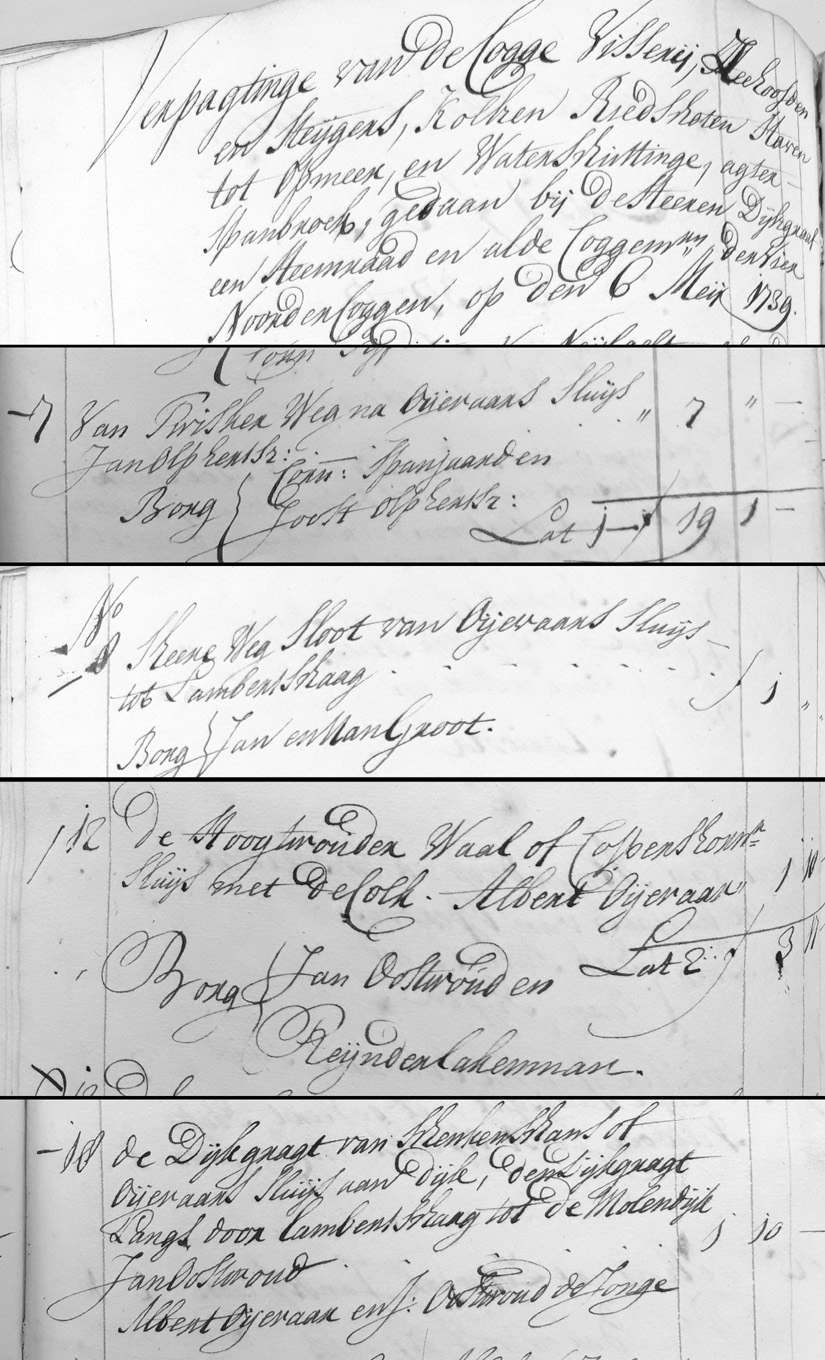 Verpagtinge van de Cogge Visserij, Zeehoofden
en Steijgers, Kolken Riedskoten Haven
tot Opmeer, en Waterschuttinge, agter
Spanbroek, gedaan bij de Heeren Dijkgraaf
een Heemraad en alde Coggemrn, der vier
Noorder Coggen, op den 6 Meij 1739.
7 Van Twisker Weg na Oijevaars Sluijs " 7 " —
Jan Olphertsz:
Corn: Spanjaard en
Borg { Joost Olphertsz:
Lat 1 — 19 1 —
No
8 Skeene Weg Sloot van Oijevaars Sluijs
tot Lambertskaag 1 "
Borg { Jan en Man Groot.
12 de Hoogtwouder Waal of Coppenskorn
Sluijs met de Colk. Albert Oijevaar 1 11
Borg { Jan Oostwoud en Lat 2: 3 11
Reijnder Lakeman.
18 de Dijkgragt van Skenkenskans tot
Oijevaars Sluijs aan Dijk, den Dijkgragt
Langs door Lambertskaag tot de Molendijk 1 10 —
Jan Oostwoud
Albert Oijevaar en J: Oostwoud de Jonge